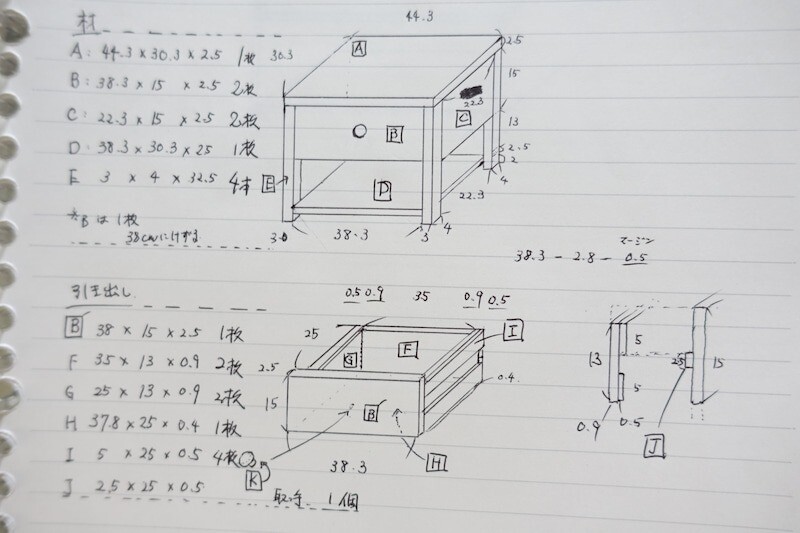 材
A: 44.3 × 30.3 × 2.5 1枚
B: 38.3 × 15 × 2.5 2枚
C: 22.3 × 15 × 2.5 2枚
D: 38.3 × 30.3 × 25 1枚
E 3 × 4 × 32.5 4本
*B は 1枚
38cmにけずる
44.3
30.3
A
2.5
15
22.3
C
B
13
2.5
2
E
D
4
22.3
3.0
38.3
3
4
マージン
38.3 - 2.8 - 0.5
引き出し
B 38 × 15 × 2.5 1枚
F 35 × 13 × 0.9 2枚
G 25 × 13 × 0.9 2枚
H 37.8 × 25 × 0.4 1枚
I 5 × 25 × 0.5 4枚
J 2.5 × 25 × 0.5
K 取手 1個
0.5 0.9 35 0.9 0.5
25
I
G
F
2.5
0.4
15
B
38.3
H
5
13
25
15
5
0.9 0.5
J